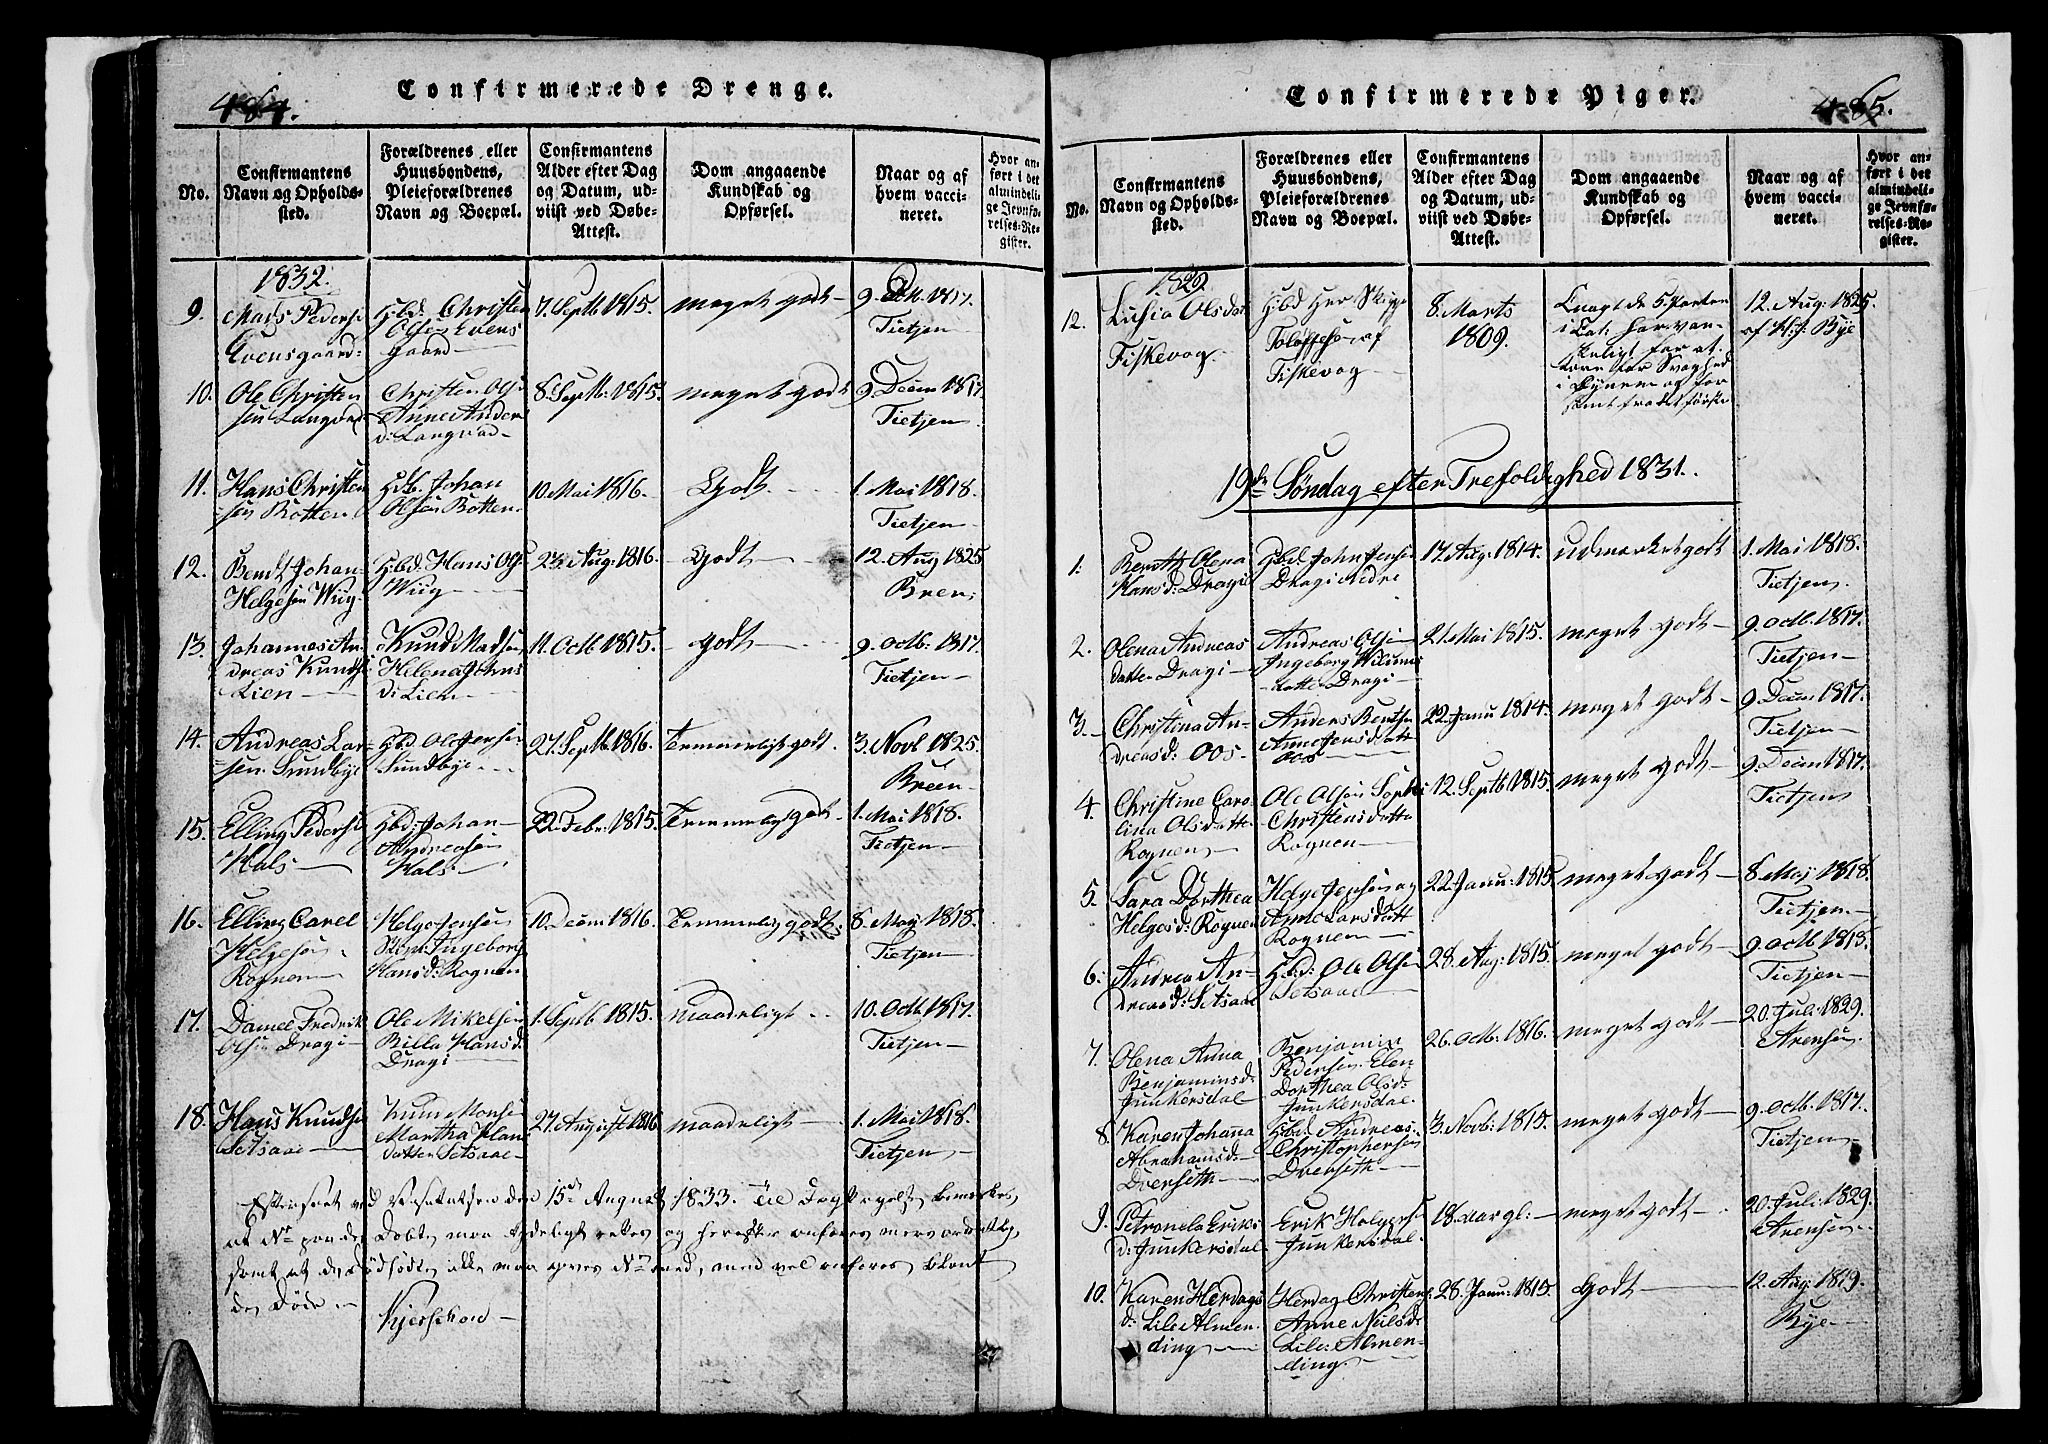 484.
Confirmerede Drenge.
No.
Confirmantens
Navn og Opholds-
sted.
Forældrenes eller
Huusbondens,
Pleieforældrenes
Navn og Boepæl.
Confirmantens
Alder efter Dag
og Datum, ud-
viist ved Døbe-
Attest.
Dom angaaende
Kundskab og
Opførsel.
Naar og af
hvem vacci-
neret.
Hvor an-
ført i det
almindeli-
ge Jevnfø-
relses-Re-
gister.
1832.
9.
Mats Peders
Evensgaard
Hbd. Christen
Olsen Evens
gaard
7. Septb 1815.
meget godt
9. Octb. 1817.
Tietjen
10.
Ole Christen
sen Langvad
Christen Olsen
Anne Anders
d: Langvad
8. Septb: 1815.
meget godt
9. Decm 1817.
Tietjen
11.
Hans Christen
sen Botten
Hdb. Johan
Olsen Botten
10. Mai 1816.
Godt
1. Mai 1818.
Tietjen
12.
Bendt Johan
Helgesen Wiig
Hbd. Hans Ols
Wiig
23. Aug: 1816.
Godt
12. Aug 1825
Breen
13.
Johannes An
dreas Knuds
Lien
Knud Madsen
Helena Johns
d: Lien
11. Octb 1815.
godt
9. octb: 1817.
Tietjen
14.
Andreas Lar-
sen Sundbye
Hbd. Ole Jensen
Sundbye
27. Septb. 1816.
Temmeligt godt.
3. Novb 1825.
Breen
15.
Elling Peders
Hals
Hbd: Johan
Andreasen
Hals
22. Febr: 1815.
Temmeligt godt
1. Mai 1818.
Tietjen
16.
Elling Carel
Helgesen
Rognen
Helge Jensen
Ingeborg
Hans d: Rognen
10. Decm 1816.
Temmelig godt
8. Maj 1818.
Tietjen
17.
Daniel Fredrik
Olsen Dragi
Ole Mikelsen
Billa Hans d.
Dragi
1. Septb 1815.
maadeligt
10. Octb. 1817.
Tietjen
18.
Hans Knudsen
Setsaae
Monsen
Martha Hans
datter Setsaae
27. August 1816
maadeligt
1. Mai 1818.
Tietjen
Efterseet ved Visitatsen den 15de August 1833.
at No paa de Døbte maa tydeligt rettes og herefter anføres mere ordentlig,
samt at de Dødfødte ikke maa gives No med, men vel anføres blant
de Døde
Kjerschow
Confirmerede Piger.
485.
No.
Confirmantens
Navn og Opholds-
sted.
Forældrenes eller
Huusbondens,
Pleieforældrenes
Navn og Boepæl.
Confirmantens
Alder efter Dag
og Datum, ud-
viist ved Døbe-
Attest.
Dom angaaende
Kundskab og
Opførsel.
Naar og af
hvem vacci-
neret.
Hvor an-
ført i det
almindeli-
ge Jevnfø-
relses-Re-
gister.
1829
12.
Lusia Olsdat
Fiskevog
Hbd Her Skipper
af
Fiskevog
8. Marts
1809.
12. Aug: 1825.
af H: J: Bye
19de Søndag efter Trefoldighed 1831.
1.
Beroth Olena
Hans d: Dragi
Hbd. John Jensen
Dragi Nedre
17. Aug: 1814.
udmerket godt
1. Mai 1818.
Tietjen.
2.
Olena Andreas
datter Dragi
Andreas Olsen
Ingeborg
datter Dragi
21. Mai 1815.
meget godt
9. octb. 1817.
Tietjen
3.
Christina An-
dreas d: Oos.
Anders Bentsen
Anne Jensdatt
Oos
22. Janu 1814.
meget godt
9 Decm 1817.
Tietjen
4.
Christine Caro
lina Olsdatter
Rognen
Ole Olsen Sophi
Christensdatter
Rognen
12. Septb 1815.
meget godt
9. Decm 1817.
Tietjen
5.
Sara Dorthea
Helges d: Rognen
Helge Jepsen og
Anne Larsdatt
Rognen
22. Janu: 1815.
meget godt
8 Maj 1818.
Tietjen
6.
Andrea An-
dreas d: Setsaae
Hbd: Ole Olsen
Setsaae
28. Aug: 1815.
meget godt
9. octb 1818.
Tietjen
7.
Olena Anna
Benjamins d:
Junkersdal
Benjamin
Pedersen Elen
Dorthea Olsd:
Junkersdal.
26. octb: 1816.
meget godt
20. Juli: 1829.
Arensen
8.
Karen Johanna
Abrahams d:
Dverseth
Hbd. Andreas
Christophersen
Dverseth
3. Novb: 1815.
meget godt
9. octb. 1817.
Tietjen
9.
Petronela Eriks
d: Junkersdal
Erik Holgersen
Junkersdal.
18. aar gl:
meget godt
20. Juli: 1829.
Arensen
10.
Karen Herdags
d: Lille Almen
ding
Herdag Christens:
Anne Neils d:
Lille Almen-
ding
28. Janu: 1815.
Godt
12. Aug: 1819.
Bye